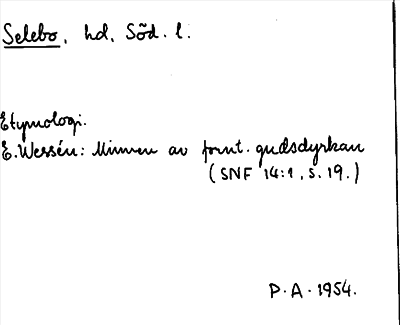 Selebo, hd, Söd. l.
Etymologi.
E. Wessén: Minnen av fornt. gudsdyrkan
(SNF 14:1, s. 19.)
P. A. 1954.